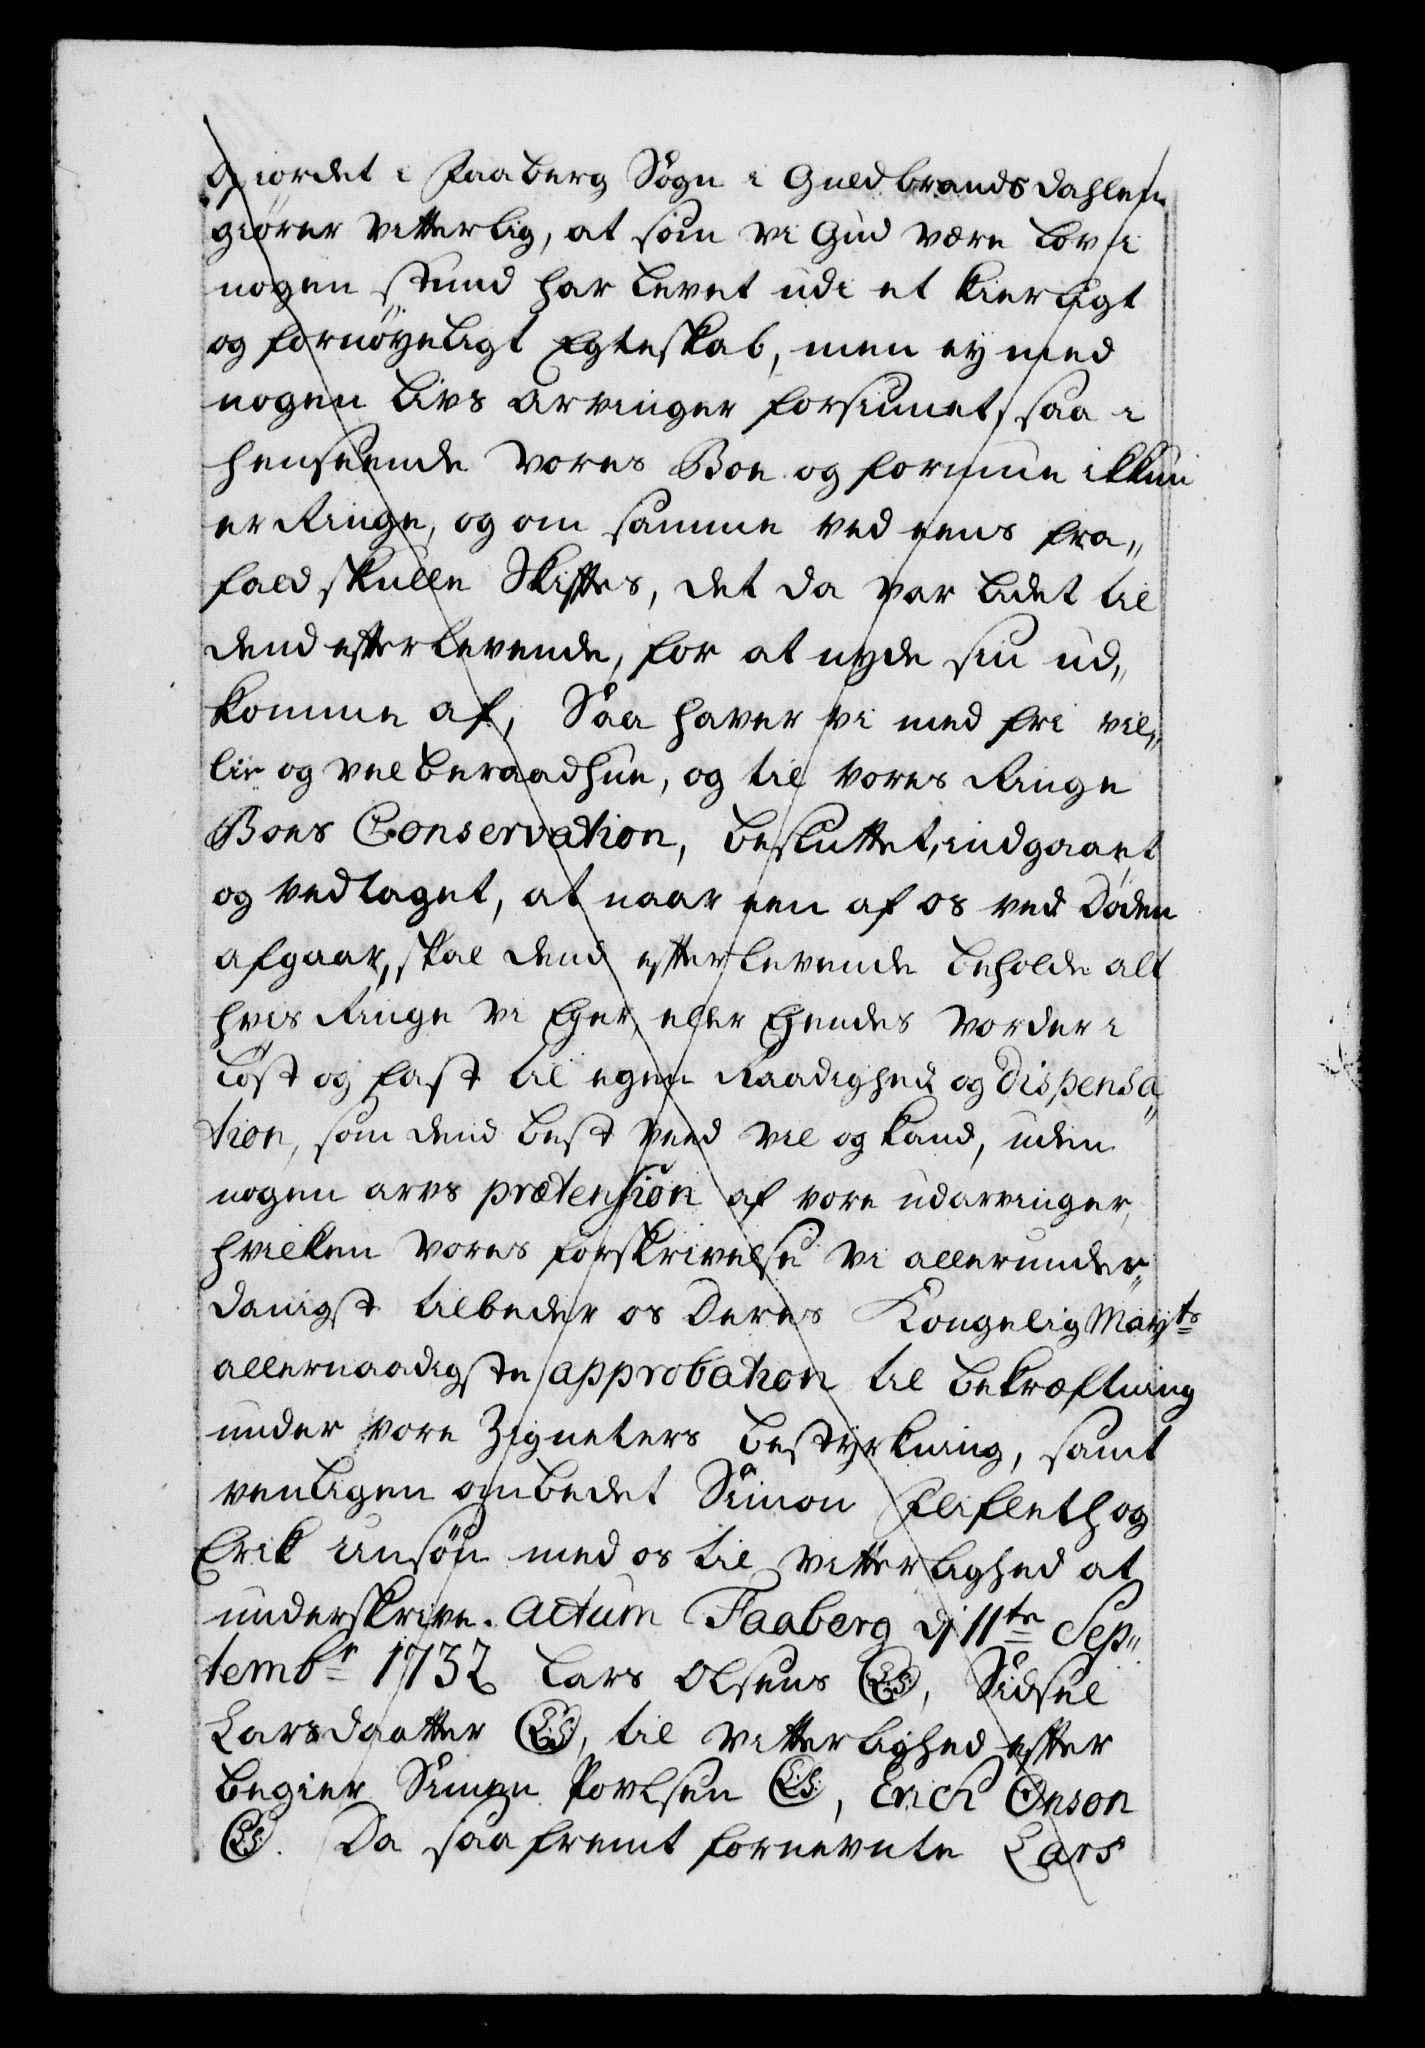 Giordet i Faaberg Sogn i Guldbrandsdahlen
giörer vitterlig, at som vi Gud være Lov i
nogen stund har levet udi et kierligt
og fornöyeligt Egteskab, men ey med
nogen Livs arvinger forsiunet, saa i
henseende vores Boe og formue ikkun
er Ringe, og om samme ved eens fra„
fald skulle Skiftes, det da var lidet til
dend efterlevende, for at nyde sin ud„
komme af, Saa haver vi med fri vil„
lie og vel beraad hue, og til vores Ringe
Boes Conservation, besluttet, indgaaet
og vedtaget, at naar een af os ved Döden
afgaar, skal dend efterlevende beholde alt
hvis Ringe vi Eyer, eller Eyendes vorder i
Löst og fast til egen Raadighed og dispensa„
tion, som dend best veed vil og kand, uden
nogen arvs prætension af vore udarvinger,
hvilken vores forskrivelse vi allerunder„
danigst tilbeder os Deres Kongelig Mayts
allernaadigste approbation til bekræftning
under vore Zigneters bestyrkning, samt
venligen ombedet Simon Flifleth og
Erik unsön med os til vitterlighed at
underskrive. Actum Faaberg d 11te Sep„
tembr 1732 Lars Olsens (L.S.), Sidsel
Larsdaatter (L.S.), til vitterlighed efter
begier Simen Povlsen (L.S.), Erich Onson
(L.S.). Da saafremt fornevnte Lars